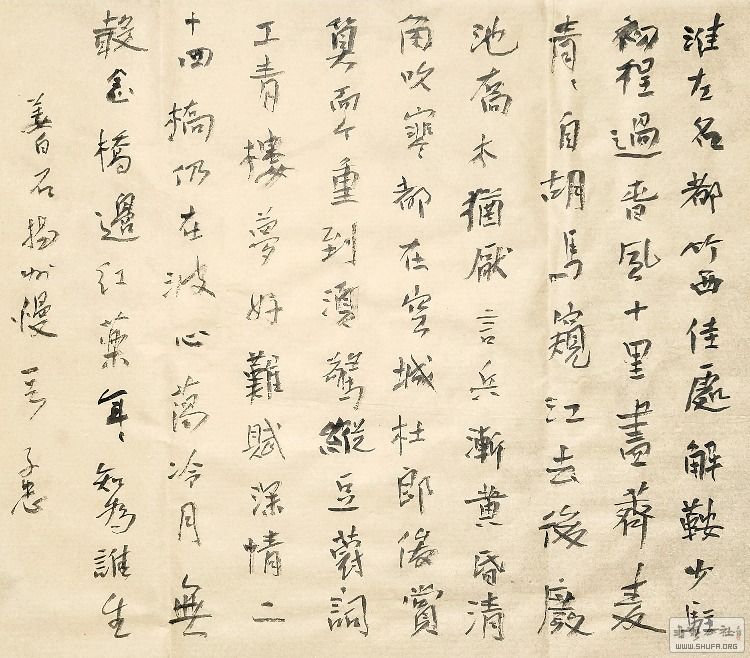 淮左名都竹西佳處解鞍少駐
初程過春風十里盡薺麦
青、自胡馬窺江去後廢
池喬木猶厭言兵漸黄昏清
角吹寒都在空城杜郎俊賞
算而今重到須驚縱豆蔻詞
工青樓夢好難賦深情二
十四橋仍在波心蕩冷月無
聲念橋邊紅藥年、知為誰生
姜白石揚州慢 子
WWW.SHUFA.ORG